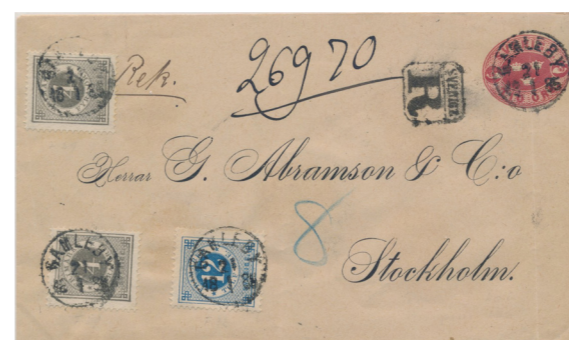 Rek.
26970
GAMLEBY
SVERIGE
R
Herrar G. Abramson & C:o
8
Stockholm.
GAMLEBY
GAMLEBY
12